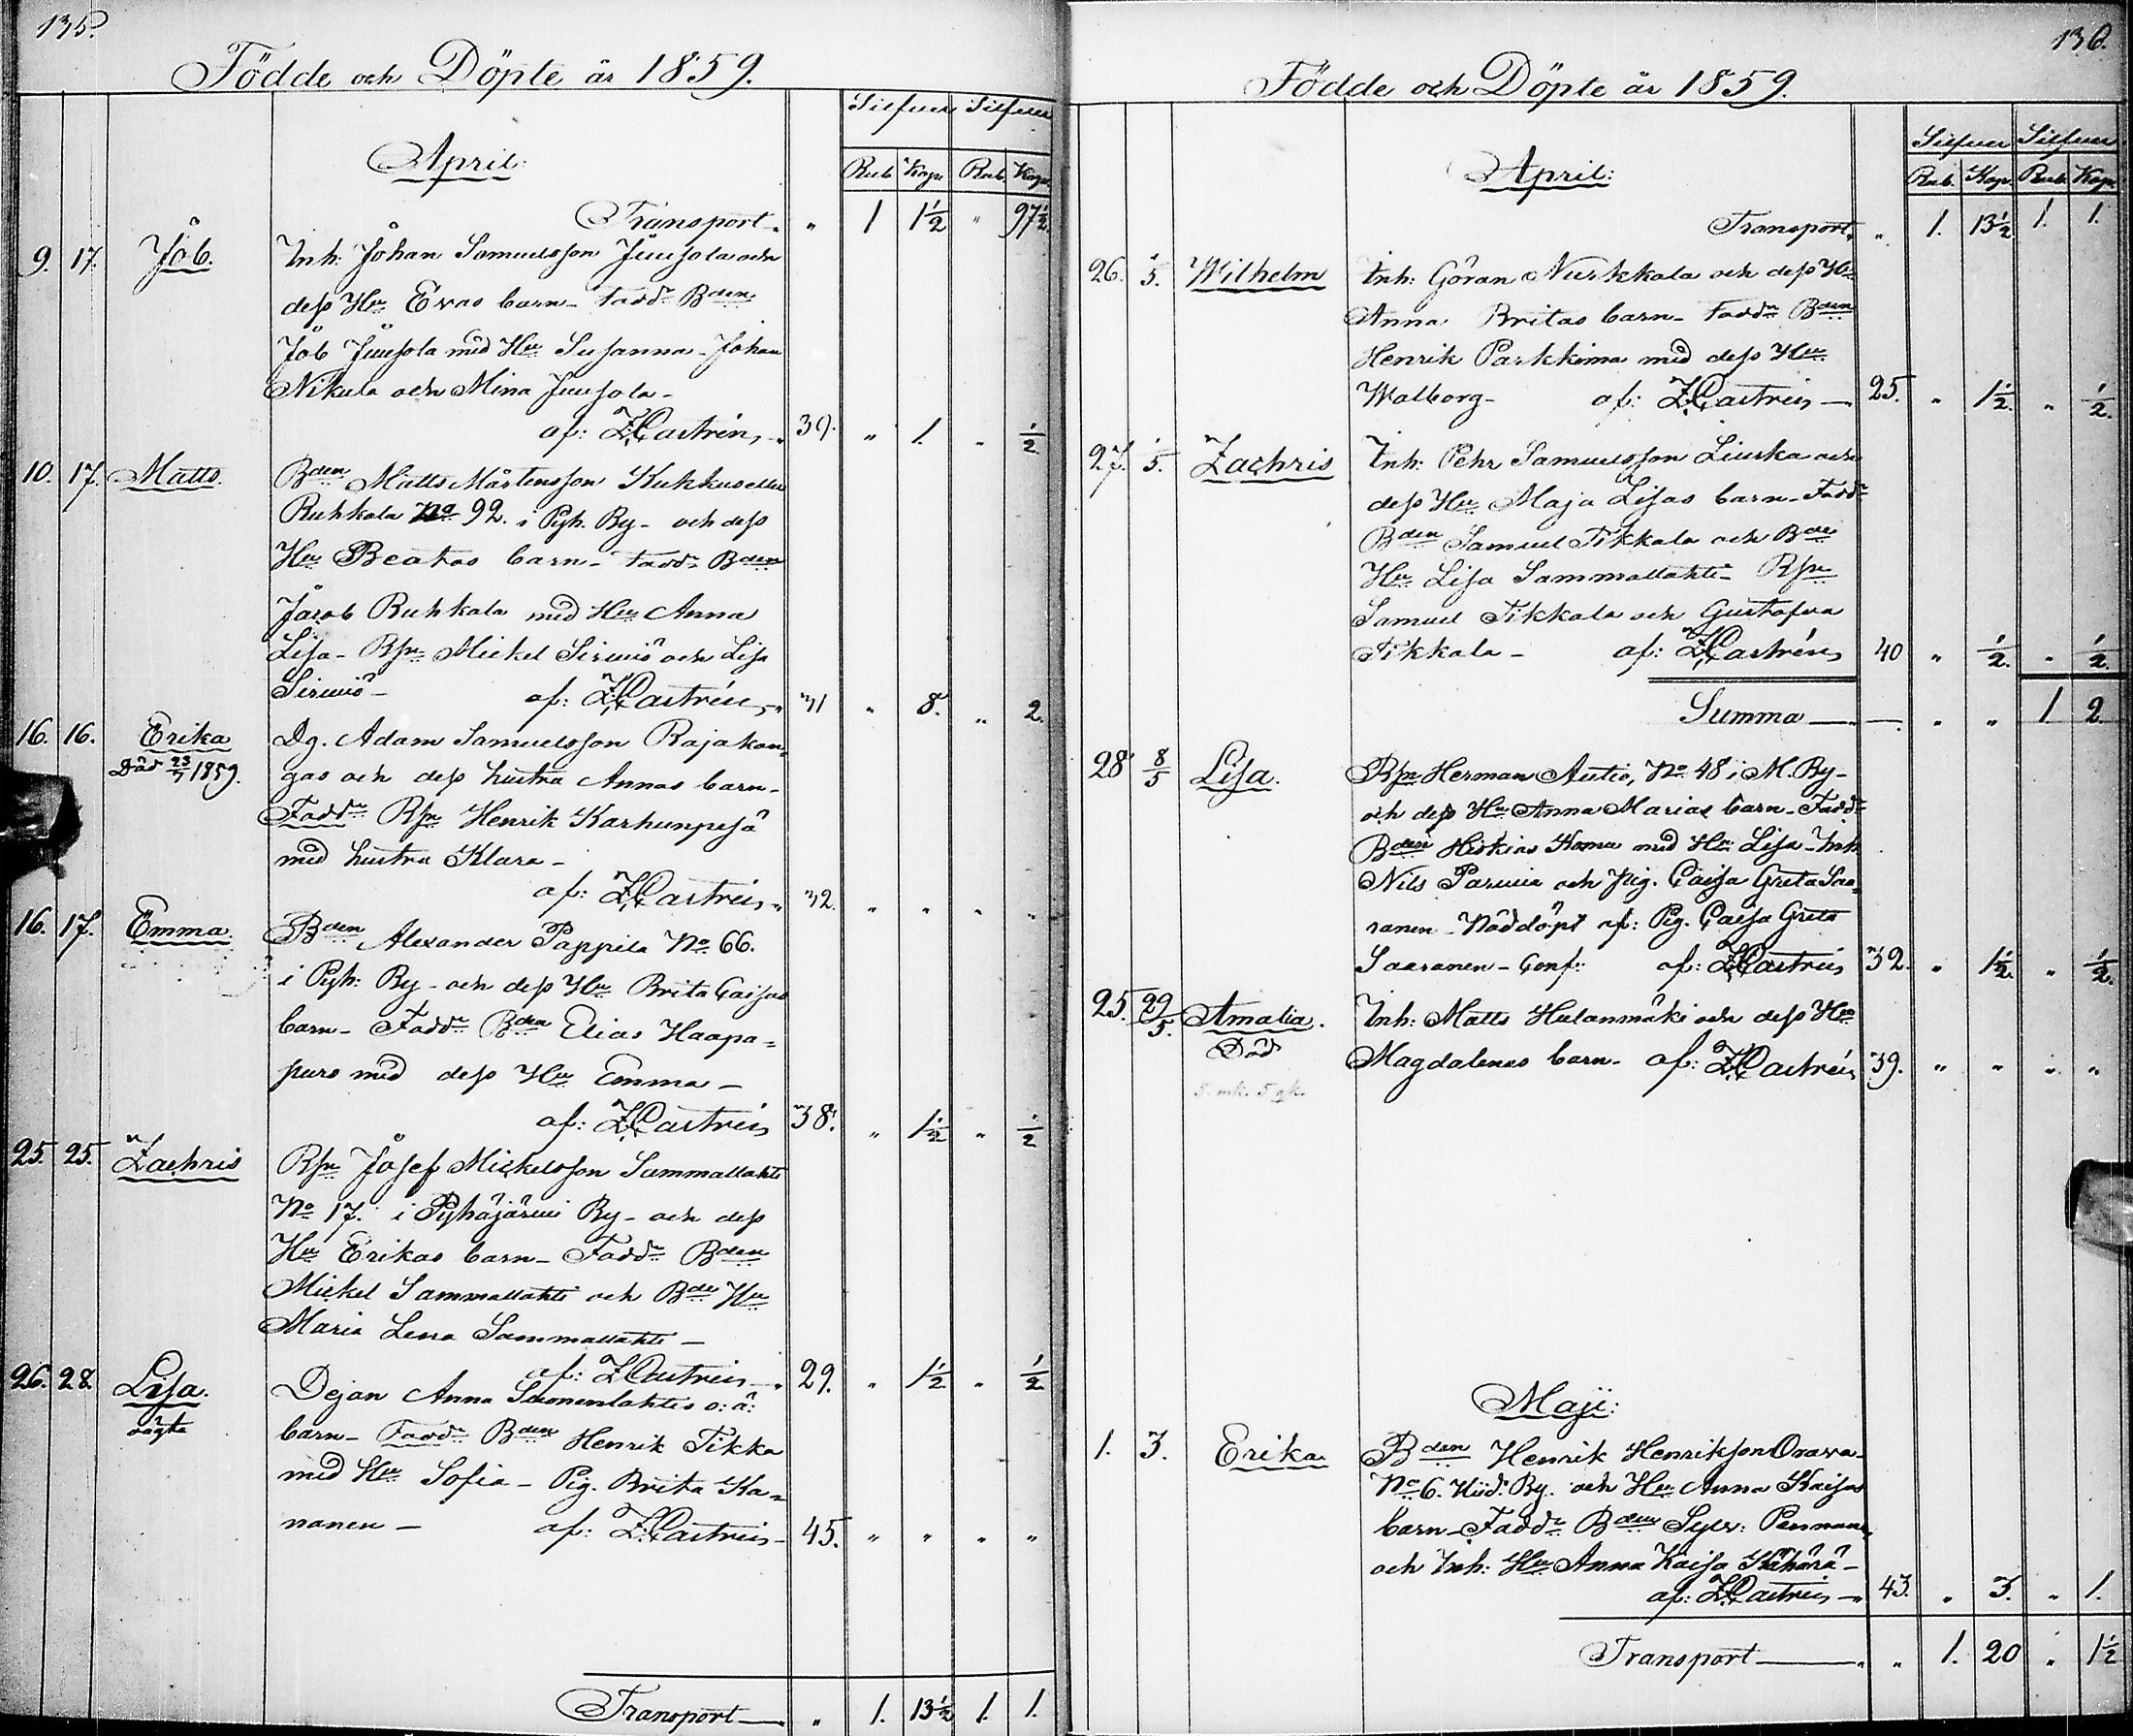 135.
Födde och Döpte år 1859.
Silfuer Silfuer
April: Rub. Kop. Rub. Kop.
Transport „ 1 1½ „ 97½.
9. 17. Job. Inh: Johan Samuelsson Juusola och
dess Hu Evas barn – Faddr Bden
Job Juusola med Hu Susanna – Johan
Nikula och Mina Juusola –
af: Z. Castrén „ 39. „ 1. „ ½
10. 17. Matts. Bden Matts Mårtensson Kukkuo eller
Ruhkala No 92. i Pyh. By – och dess
Hu Beatas barn – Faddr Bden
Jacob Ruhkala med Hu Anna
Lisa – Bsn Mickel Sirviö och Lisa
Sirviö – af: Z. Castrén „ 31 „ 8. „ 2.
16. 16. Erika Dg. Adam Samuelsson Rajakan-
Död 23/7 1859. gas och dess hustru Annas barn –
Faddr Bsn Henrik Karhunpesä
med hustru Klara –
af: Z. Castrén „ 32. „ „ „ „
16. 17. Emma. Bden Alexander Pappila No 66.
i Pyh: By – och dess Hu Brita Caisas
barn – Faddr Bden Elias Haapa=
puro med dess Hu Emma –
af: Z. Castrén 38. „ 1½ „ ½
25. 25. Zachris Bsn Josef Mickelsson Sammallahti
No 17. i Pyhäjärvi By – och dess
Hu Erikas barn – Faddr Bden
Mickel Sammallahti och Bde Hu
Maria Lena Sammallahti –
af: Z. Castrén – 29. „ 1½ „ ½
26. 28. Lisa. Dejan Anna Suonenlahtis o: ä:
oägta barn – Faddr Bden Henrik Tikka
med Hu Sofia – Pig. Brita Ka=
nanen – af: Z. Castrén – 45. „ „ „ „
Transport — „ 1. 13½ 1. 1.
136.
Födde och Döpte år 1859.
Silfuer Silfuer
April: Rub. Kop. Rub. Kop.
Transport. „ 1. 13½ 1. 1.
26. 1/5. Wilhelm Inh: Göran Nurkkala och dess Hu
Anna Britas barn – Faddr Bden
Henrik Parkkima med dess Hu
Walborg – af: Z. Castrén — 25. „ 1½. „ ½.
27. 1/5. Zachris Inh: Pehr Samuelsson Liuska och
dess Hu Maja Lisas barn – Faddr
Bden Samuel Tikkala och Bde
Hu Lisa Sammallahti – Bsn
Samuel Tikkala och Gustafva
Tikkala – af: Z. Castrén 40 „ ½. „ ½
Summa — — „ „ 1 2
28 8/5 Lisa. Bsn Herman Autio, No 48 i M. By –
och dess Hu Anna Marias barn – Faddr
Bden Hiskias Koma med Hu Lisa – Inh
Nils Parvia och Pig. Caisa Greta Saa-
ranen – Nöddöpt af: Pig. Caisa Greta
Saaranen – Conf: af: Z. Castrén 32. „ 1½. „ ½.
25. 29/5. Amalia. Inh: Matts Hulanmäki och dess Hu
Död Magdalenas barn – af: Z. Castrén 39. „ „ „ „
Maji:
1. 3. Erika. Bden Henrik Henriksson Orava
No 6. Hiid. By. och Hu Anna Kaisas
barn – Faddr Bden Sylv: Pennanen
och Inh: Hu Anna Kaisa Kähärä –
af: Z. Castrén — 43. „ 3. „ 1.
Transport — „ 1. 20 „ 1½